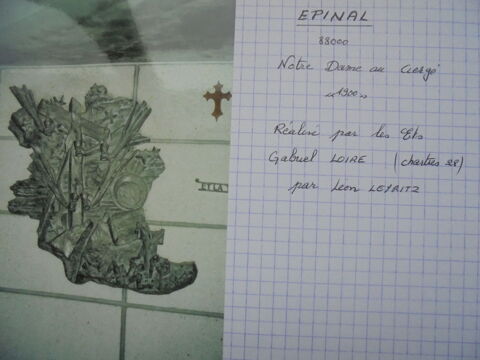 EPINAL
88000
Notre Dame au Cierge
"1900"
Réalisé par les Ets
Gabriel LOIRE (chartres 28)
par Léon LEYRITZ
ET LA